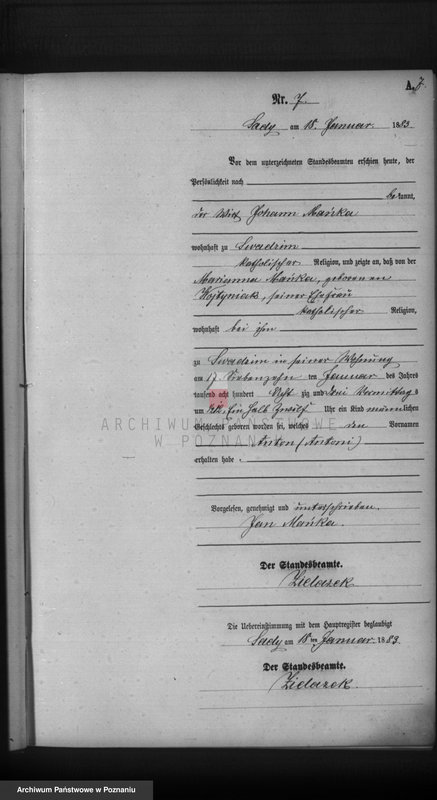 A. 7.
Nr. 7.
Sady am 18. Januar. 1883.
Vor dem unterzeichneten Standesbeamten erschien heute, der
Persönlichkeit nach
be kannt,
der Wirt Johann Mańka
wohnhaft zu Swadzim
katholischer Religion, und zeigte an, daß von der
Marianna Mańka, geborenen
Wojtyniak, seiner Ehefrau
katholischer Religion,
wohnhaft bei ihm
zu Swadzim in seiner Wohnung
am 17. Siebenzehn ten Januar des Jahres
tausend acht hundert Acht zig und drei Vormittags
um Ein halb Zwölf Uhr ein Kind männlichen
Geschlechts geboren worden sei, welches den Vornamen
Anton (Antoni)
erhalten habe.
Vorgelesen, genehmigt und unterschrieben.
Jan Mańka.
Der Standesbeamte.
Zielazek
Die Uebereinstimmung mit dem Hauptregister beglaubigt
Sady am 18 ten Januar. 1883.
Der Standesbeamte.
Zielazek.
ARCHIWUM PAŃSTWOWE
W POZNANIU
Archiwum Państwowe w Poznaniu